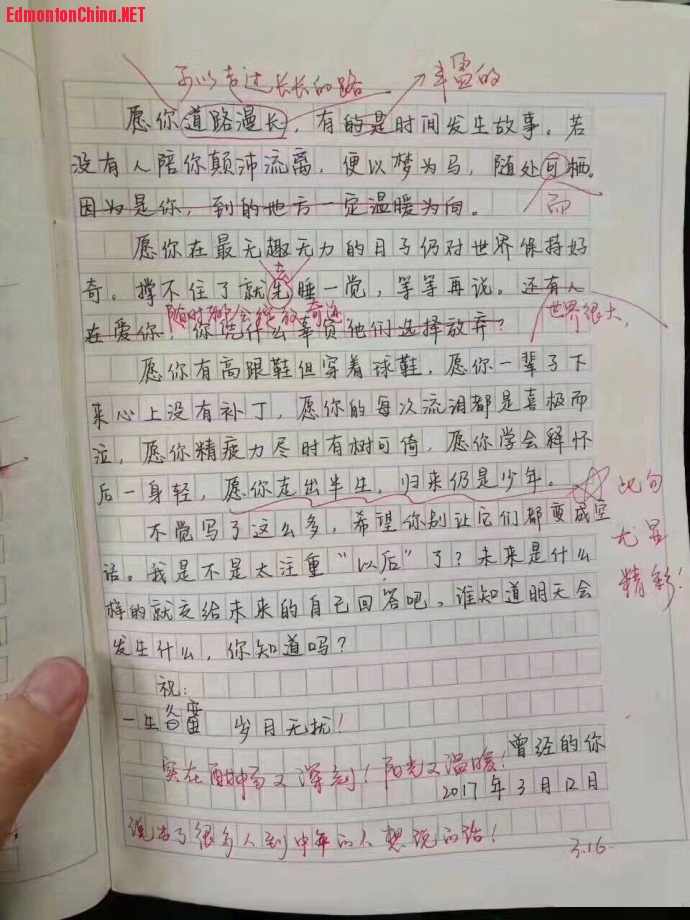 EdmontonChina.NET
可以走过长长的路
丰盈的
愿你道路漫长，有的是时间发生故事。若
没有人陪你颠沛流离，便以梦为马，随处可栖。
因为是你，到的地方一定温暖为向。
而
愿你在最无趣无力的日子仍对世界保持好
去
奇。撑不住了就先睡一觉，等等再说。还有人
随时都会绽放奇迹
世界很大，
在爱你，你凭什么辜负他们选择放弃？
愿你有高跟鞋但穿着球鞋，愿你一辈子下
来心上没有补丁，愿你的每次流泪都是喜极而
泣，愿你精疲力尽时有树可倚，愿你学会释怀
后一身轻，愿你走出半生，归来仍是少年。
此句
尤显
精彩！
不觉写了这么多，希望你别让它们都变成空
话。我是不是太注重“以后”了？未来是什么
样的就交给未来的自己回答吧，谁知道明天会
发生什么，你知道吗？
祝：
一生 岁月无扰！
实在 又深刻！阳光又温暖！
曾经的你
2017年3月12日
说出了很多人到中年的人想说的话！
3.16